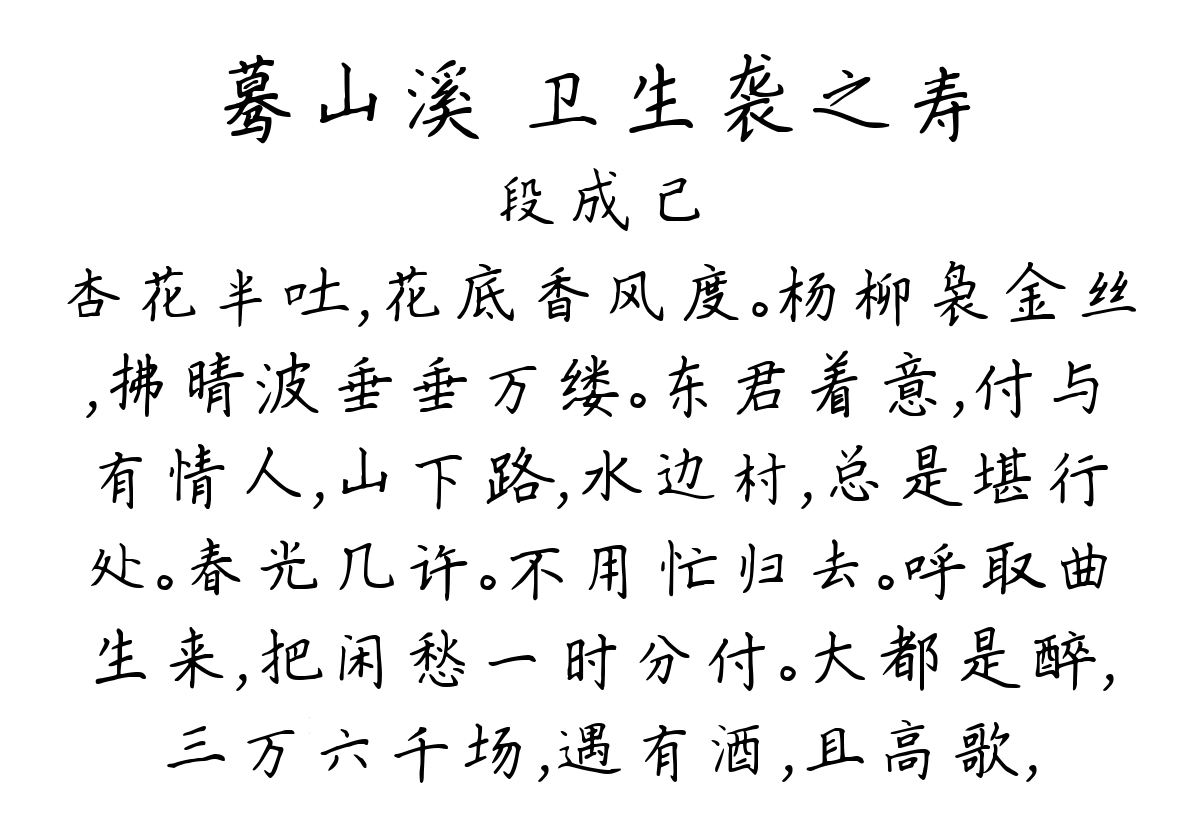 蓦山溪 卫生袭之寿
段成己
杏花半吐,花底香风度。杨柳袅金丝
,拂晴波垂垂万缕。东君着意,付与
有情人,山下路,水边村,总是堪行
处。春光几许。不用忙归去。呼取曲
生来,把闲愁一时分付。大都是醉,
三万六千场,遇有酒,且高歌,